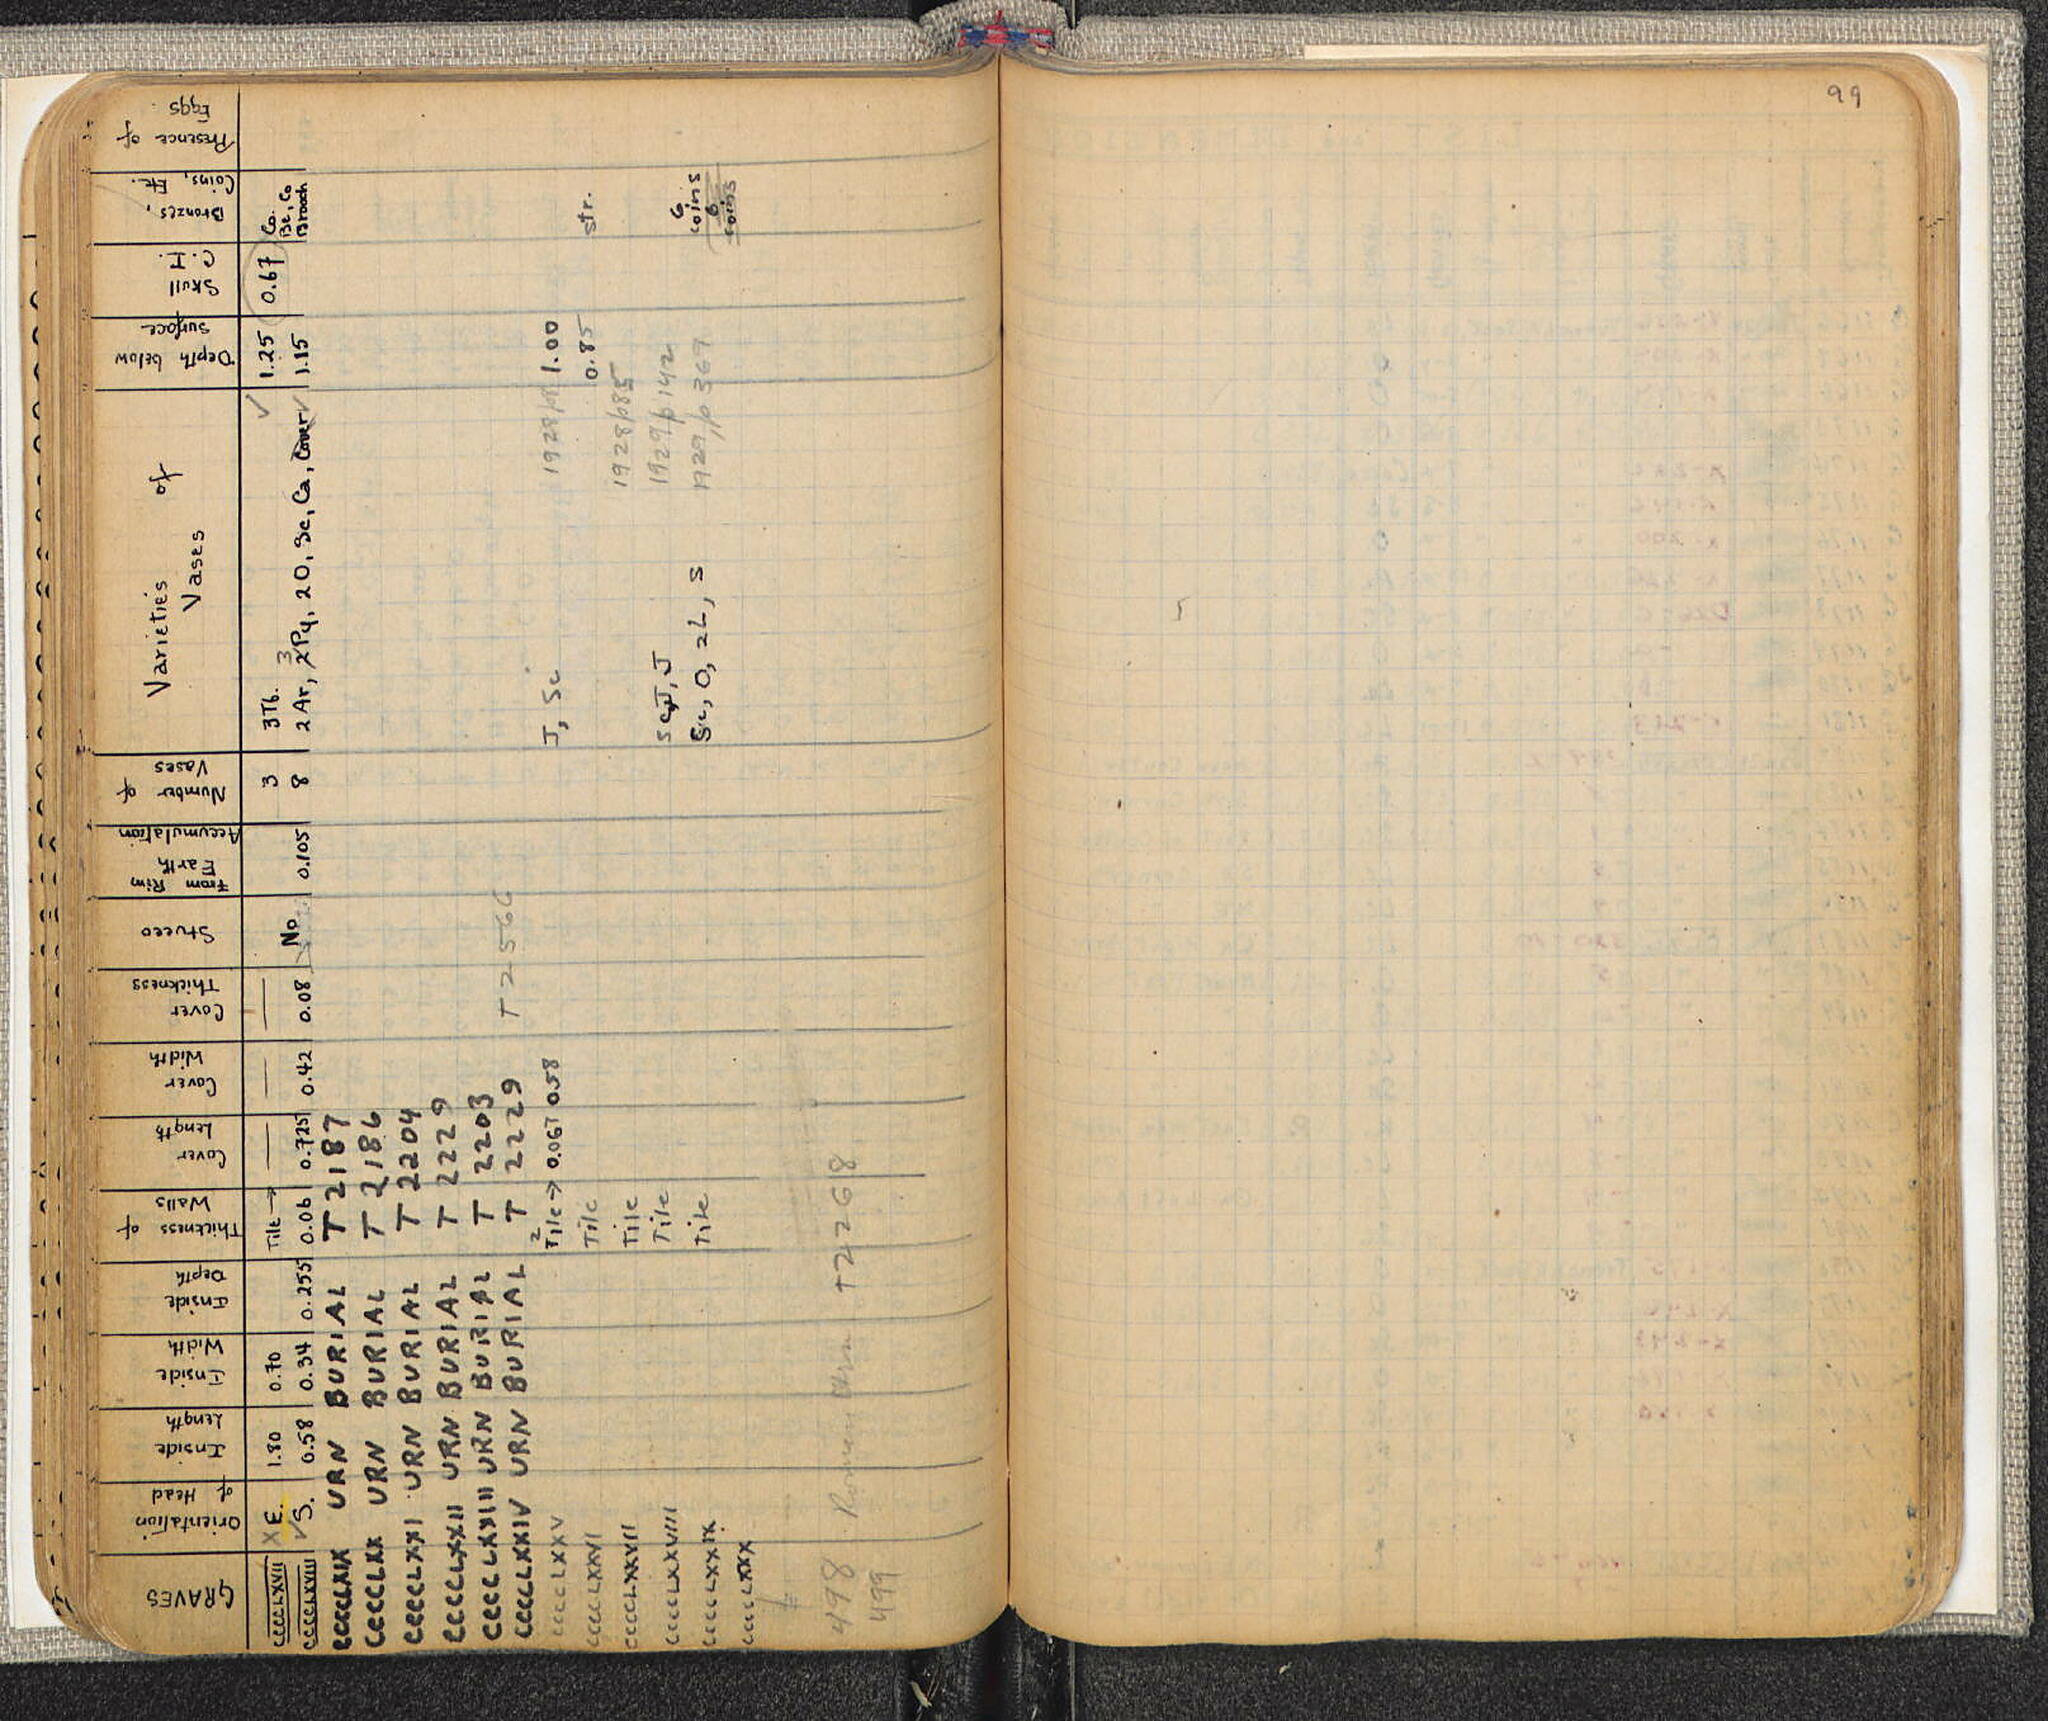 GRAVES Orientation of Head Inside Length Inside Width Inside Depth Thickness of Walls Cover Length Cover Width Cover Thickness Stucco From Rim Earth Accumulation Number of Vases Varieties of Vases Depth below Surface Skull C.I. Bronzes, Coins, Etc. Presence of Eggs
CCCCLXVII X E. 1.80 0.70 Tile → — — — 3 3Tb. ✓ 1.25 0.67 Co.
CCCCLXVIII ✓ S. 0.58 0.34 0.255 0.06 0.725 0.42 0.08 No 0.105 8 2Ar, 3 2Py, 2O, Sc, Ca, Cover ✓ 1.15 Be, Co Brooch
CCCCLXIX URN BURIAL T 2187
CCCCLXX URN BURIAL T 2186
CCCCLXXI URN BURIAL T 2204
CCCCLXXII URN BURIAL T 2229
CCCCLXXIII URN BURIAL T 2203
CCCCLXXIV URN BURIAL T 2229 T 2566
CCCCLXXV 2 Tile → 0.06T 0.58 J, Sc 1928/ 1.00
CCCCLXXVI Tile 0.85 str.
CCCCLXXVII Tile 1928/p85
CCCCLXXVIII Tile Sc, J 1929/p142
CCCCLXXIX Tile Sc, O, 2L, S 1929/p369 6 coins
CCCCLXXX 6 coins
498 Roman Urn T2268
499
99